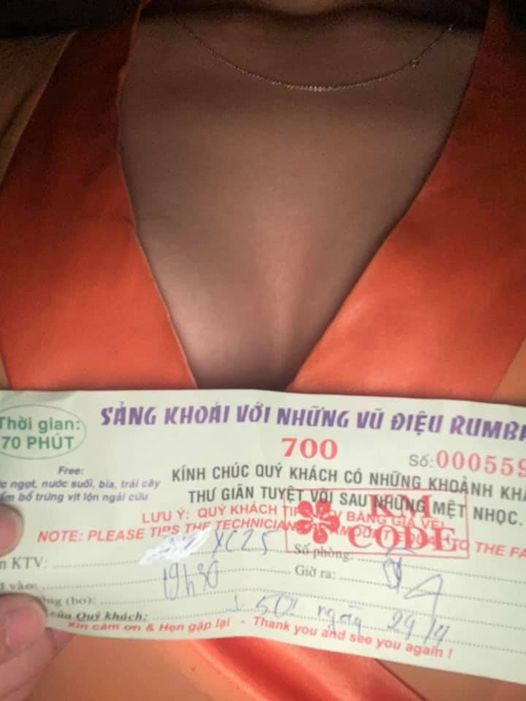 Thời gian:
70 PHÚT
SẢNG KHOÁI VỚI NHỮNG VŨ ĐIỆU RUMB
700
Số: 000559
Free:
ngọt, nước suối, bia, trái cây
bổ trứng vịt lộn ngải cứu
KÍNH CHÚC QUÝ KHÁCH CÓ NHỮNG KHOẢNH KH
THƯ GIÃN TUYỆT VỜI SAU NHỮNG MỆT NHỌC.
LƯU Ý: QUÝ KHÁCH TIP BẰNG GIÁ VÉ
NOTE: PLEASE TIPS THE TECHNICIAN TO THE FA
CODE
KTV: XC25
Số phòng:
vào: 19h30
Giờ ra:
(bo):
của Quý khách: ngày 29/4
Xin cảm ơn & Hẹn gặp lại - Thank you and see you again !